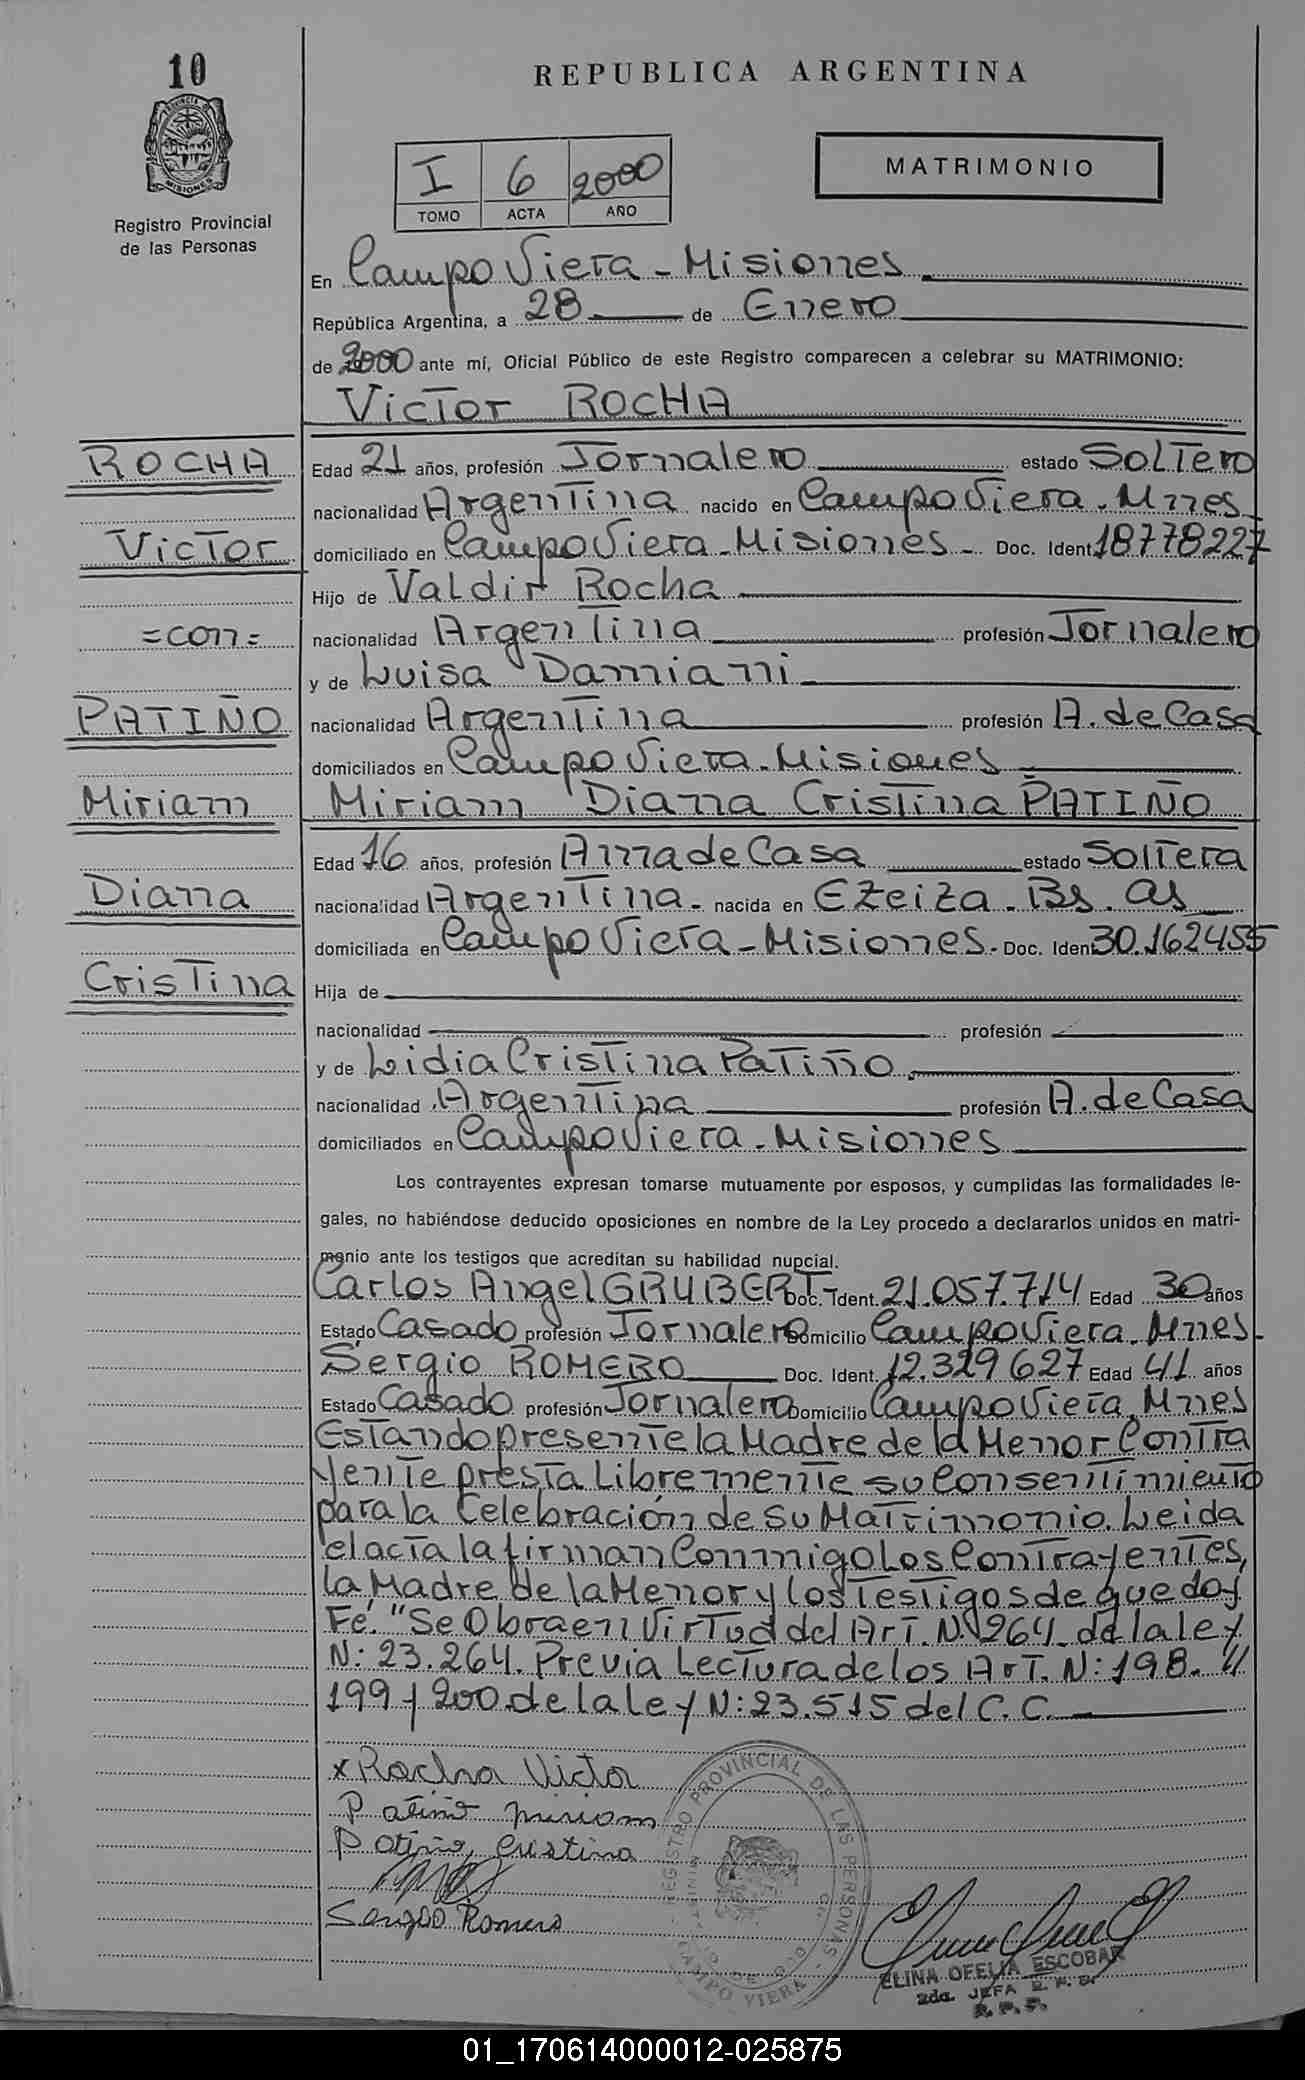 10
REPUBLICA ARGENTINA
PROVINCIA DE MISIONES
Registro Provincial
de las Personas
I 6 2000
TOMO ACTA AÑO
MATRIMONIO
En Campo Viera - Misiones
República Argentina, a 28 de Enero
de 2000 ante mí, Oficial Público de este Registro comparecen a celebrar su MATRIMONIO:
Victor ROCHA
ROCHA
Victor
=con=
PATIÑO
Miriam
Diana
Cristina
Edad 21 años, profesión Jornalero estado Soltero
nacionalidad Argentina nacido en Campo Viera. Mnes
domiciliado en Campo Viera - Misiones - Doc. Ident. 18778227
Hijo de Valdir Rocha
nacionalidad Argentina profesión Jornalero
y de Luisa Damiani
nacionalidad Argentina profesión A. de Casa
domiciliados en Campo Viera - Misiones
Miriam Diana Cristina PATIÑO
Edad 16 años, profesión Ama de Casa estado Soltera
nacionalidad Argentina - nacida en Ezeiza. Bs. as
domiciliada en Campo Viera - Misiones. Doc. Ident. 30.162455
Hija de
nacionalidad profesión
y de Lidia Cristina Patiño
nacionalidad Argentina profesión A. de Casa
domiciliados en Campo Viera - Misiones
Los contrayentes expresan tomarse mutuamente por esposos, y cumplidas las formalidades le-
gales, no habiéndose deducido oposiciones en nombre de la Ley procedo a declararlos unidos en matri-
monio ante los testigos que acreditan su habilidad nupcial.
Carlos Angel GRUBERT - Doc. Ident. 21.057.714 Edad 30 años
Estado Casado profesión Jornalero Domicilio Campo Viera. Mnes.
Sergio ROMERO Doc. Ident. 12.329627 Edad 41 años
Estado Casado profesión Jornalero Domicilio Campo Viera. Mnes
Estando presente la Madre de la Menor Contra
yente presta Libremente su Consentimiento
para la Celebración de su Matrimonio. Leida
el acta la firman Conmigo Los Contrayentes,
la Madre de la Menor y los Testigos de que doy
Fé. "Se Obra en Virtud del Art. N: 264. de la ley
N: 23.264. Previa Lectura de los Art. N: 198. "
199 y 200 de la ley N: 23.515 del C. C.
x Rocha Victor
Patiño Miriam
Patiño, Cristina
Sergio Romero
REGISTRO PROVINCIAL DE LAS PERSONAS
CAMPO VIERA
ELINA OFELIA ESCOBAR
2da. JEFA
01_170614000012-025875